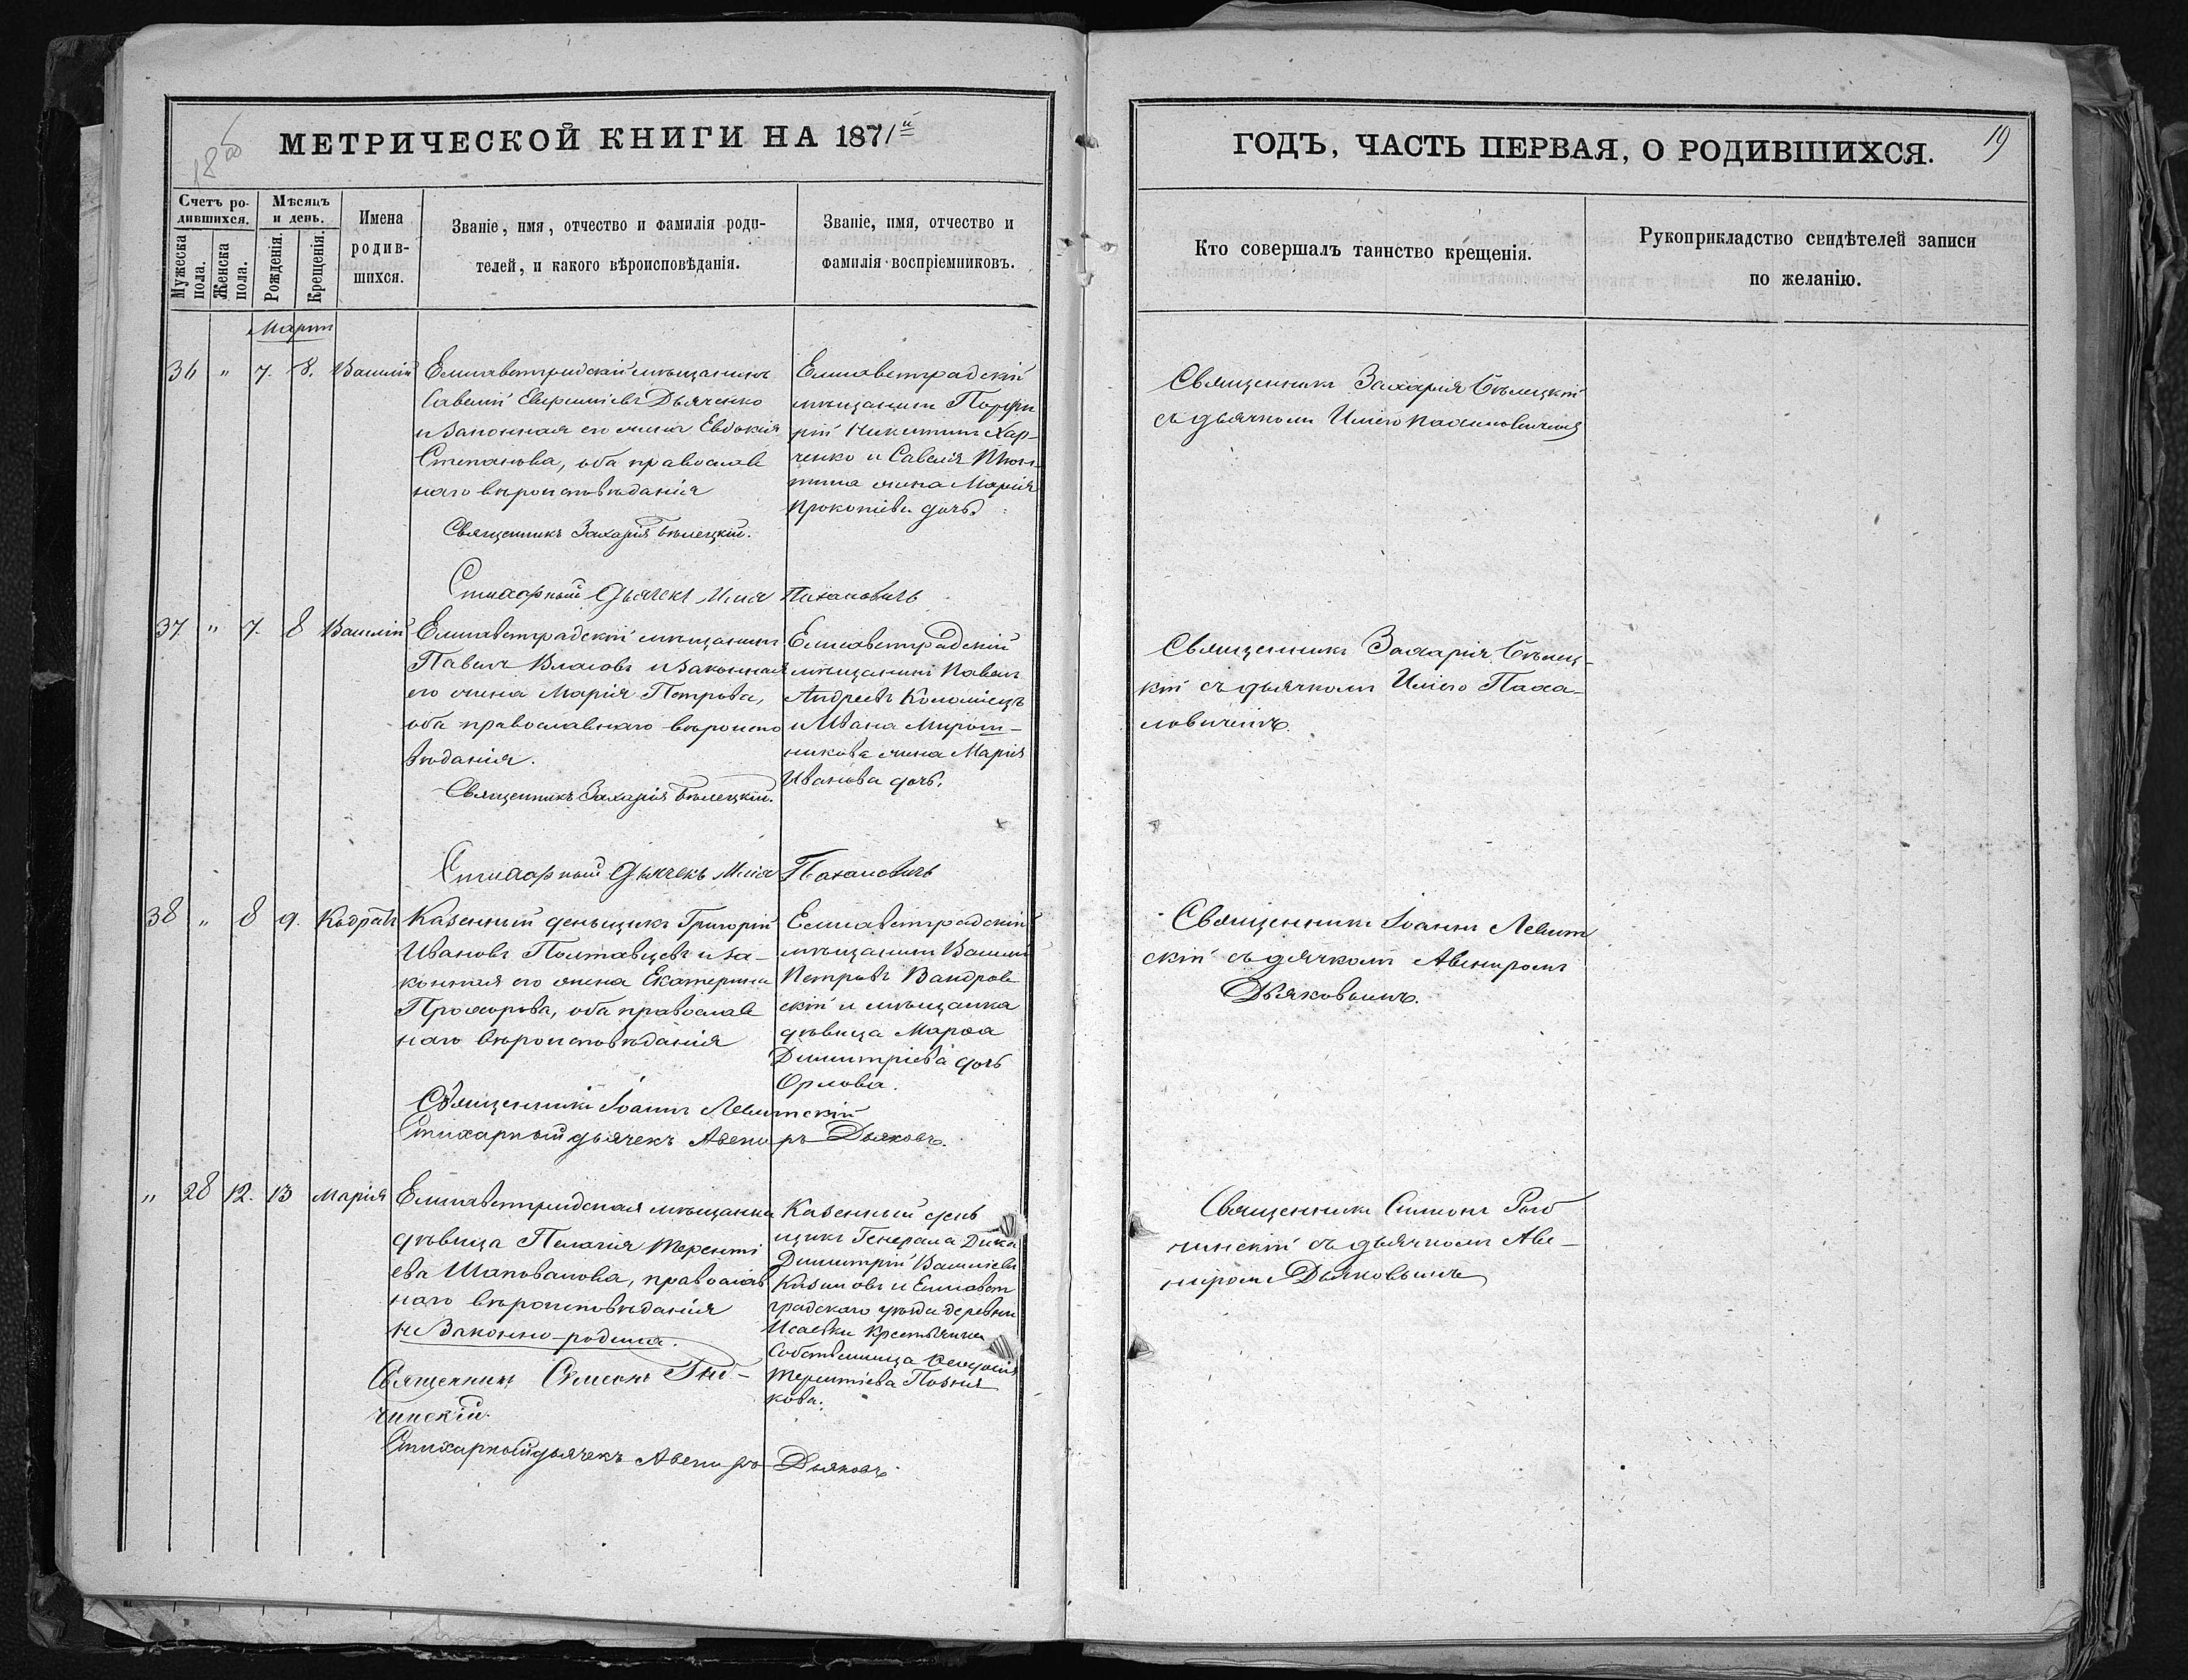 МЕТРИЧЕСКОЙ КНИГИ НА 1871й
Счетъ ро-
дившихся.
Мужеска
пола.
Женска
пола.
Мѣсяцъ
и день.
Рожденія.
Крещенія.
Имена
родив-
шихся.
Званіе, имя, отчество и фамилія роди-
телей, и какого вѣроисповѣданія.
Званіе, имя, отчество и
фамилія воспріемниковъ.
Мартъ
36 " 7. 8. Василій
Елисаветградскій мѣщанинъ
Савелій Евфиміевъ Дьяченко
и законная его жена Евдокія
Степанова, оба православ
наго вѣроисповѣданія
Священникъ Захарія Бѣлецкій.
Стихарный Дьячекъ Илія Пахаловичъ
Елисаветградскій
мѣщанинъ Порфи
рій Никитинъ Хар-
ченко и Савелія
жена Марія
Прокопіева дочь.
37 " 7. 8 Василій
Елисаветградскій мѣщанинъ
Павелъ Власовъ и законная
его жена Марія Петрова,
оба православнаго вѣроиспо
вѣданія.
Священникъ Захарія Бѣлецкій.
Стихарный Дьячекъ Илія Пахаловичъ
Елисаветградскій
мѣщанинъ Павелъ
Андреевъ Коломіецъ
и Ивана Мирош-
никова жена Марія
Иванова дочь.
38 " 8 9. Кодратъ
Казенный деньщикъ Григорій
Ивановъ Полтавцевъ и за-
конная его жена Екатерина
Прохорова, оба православ
наго вѣроисповѣданія
Священникъ Іоаннъ Левитскій
Стихарный дьячекъ Авениръ Дьяковъ.
Елисаветградскій
мѣщанинъ Василій
Петровъ Вандров
скій и мѣщанка
дѣвица Марѳа
Димитріева дочь
Орлова.
" 28 12. 13 Марія
Елисаветградская мѣщанка
дѣвица Пелагія Теренті
ева Шаповалова, православ
наго вѣроисповѣданія
не Законно-родила.
Священникъ Симеонъ
чинскій.
Стихарный дьячекъ Авениръ Дьяковъ
Казенный день
щикъ Генерала
Димитрій Василіевъ
Казимовъ и Елисавет
градскаго уѣзда деревни
Исаевки Крестьянка
Собственница Ѳеодосія
Терентіева Позня
кова.
ГОДЪ, ЧАСТЬ ПЕРВАЯ, О РОДИВШИХСЯ.
19
Кто совершалъ таинство крещенія.
Рукоприкладство свидѣтелей записи
по желанію.
Священникъ Захарія Бѣлецкій
съ дьячкомъ Иліею Пахаловичемъ
Священникъ Захарія Бѣлец-
кій съ дьячкомъ Иліею Паха-
ловичемъ.
Священникъ Іоаннъ Левит
скій съ дьячкомъ Авениромъ
Дьяковымъ.
Священникъ Симеонъ
чинскій съ дьячкомъ Аве-
ниромъ Дьяковымъ